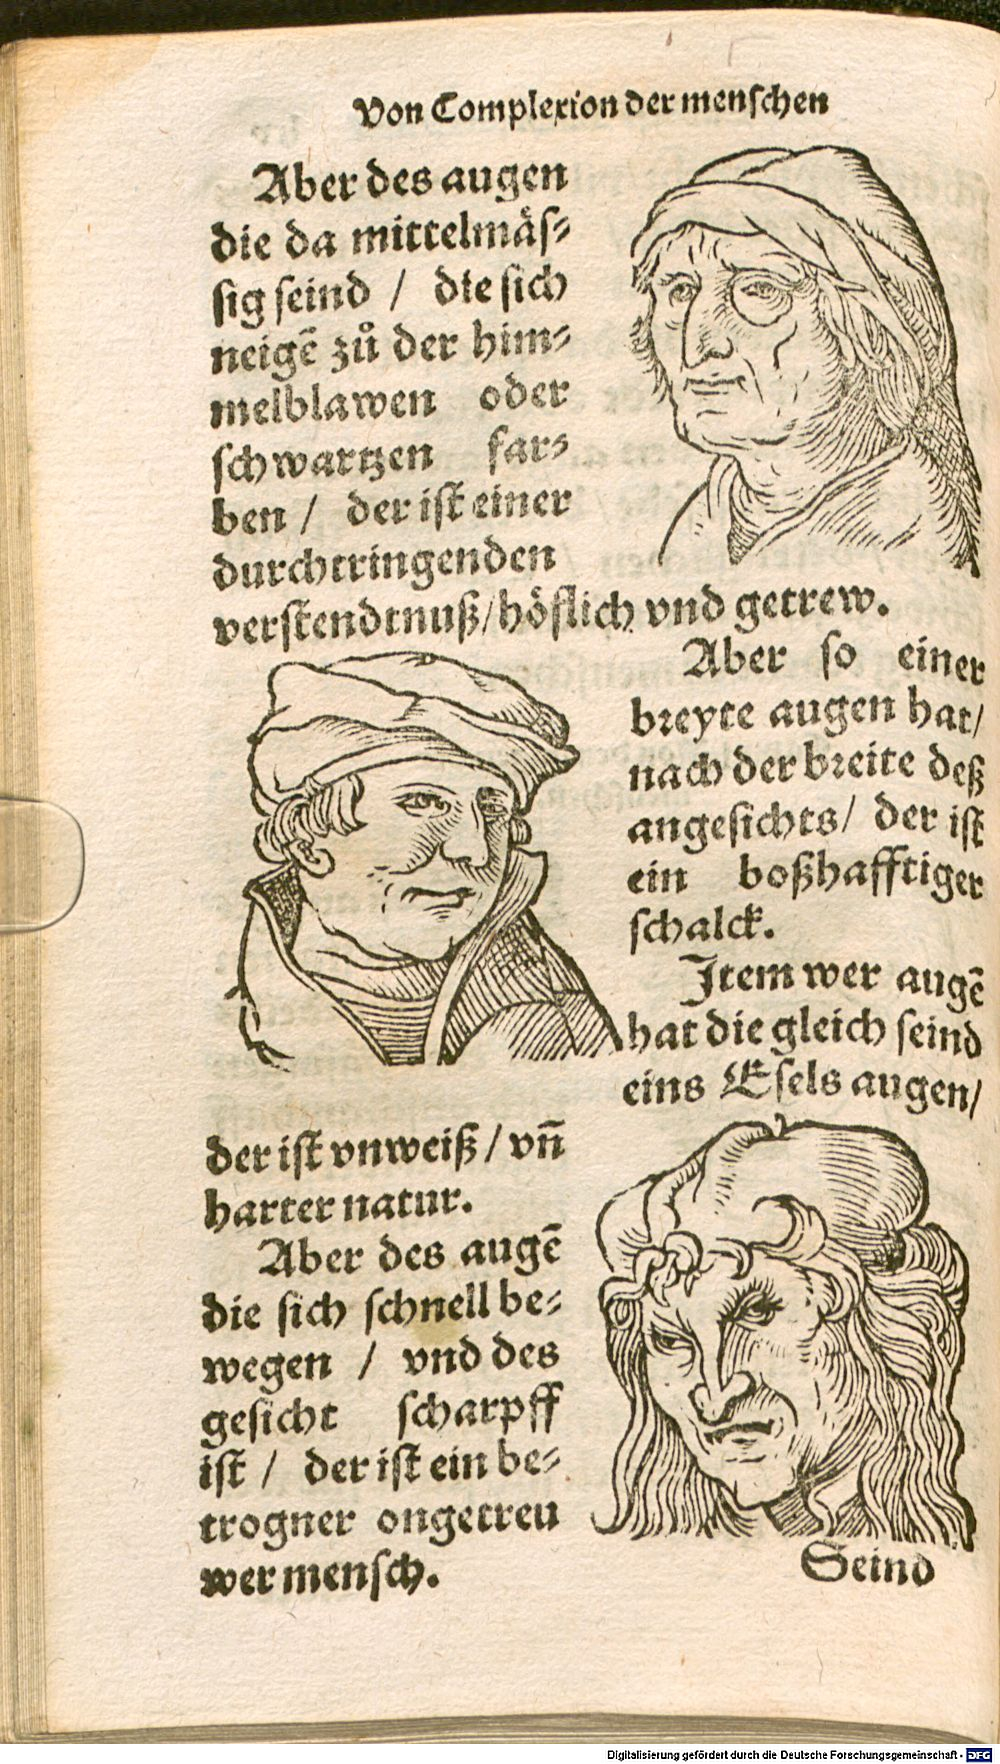 Von Complexion der menschen
Aber des augen
die da mittelmäs⸗
sig seind / die sich
neigẽ zů der him⸗
melblawen oder
schwartzen far⸗
ben / der ist einer
durchtringenden
verstendtnuß/höflich vnd getrew.
Aber so einer
breyte augen hat/
nach der breite deß
angesichts/ der ist
ein boßhafftiger
schalck.
Item wer augẽ
hat die gleich seind
eins Esels augen/
der ist vnweiß / vñ
harter natur.
Aber des augẽ
die sich schnell be⸗
wegen / vnd des
gesicht scharpff
ist / der ist ein be⸗
trogner ongetreu
wer mensch.
Seind
Digitalisierung gefördert durch die Deutsche Forschungsgemeinschaft - DFG